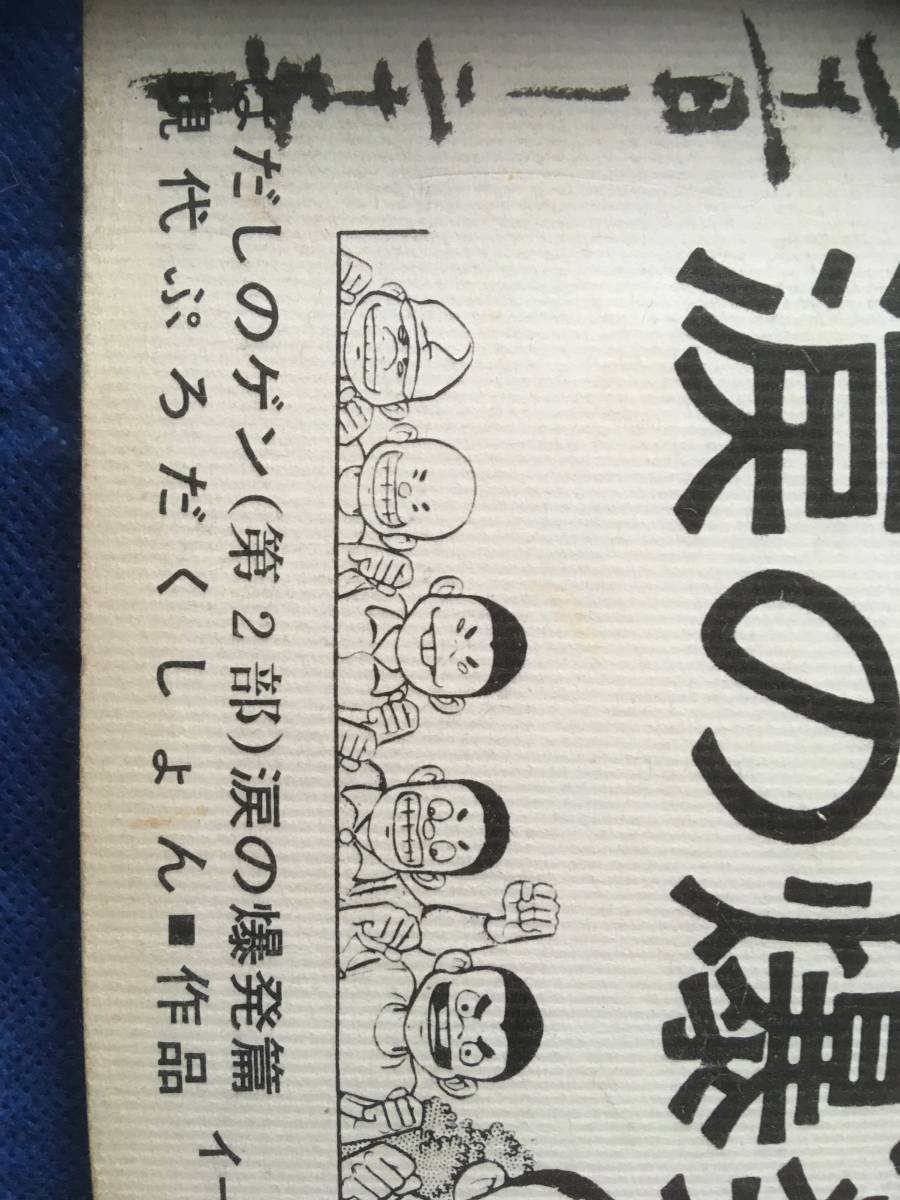 涙の爆
はだしのゲン(第2部)涙の爆発篇
現代ぷろだくしょん■作品
イー